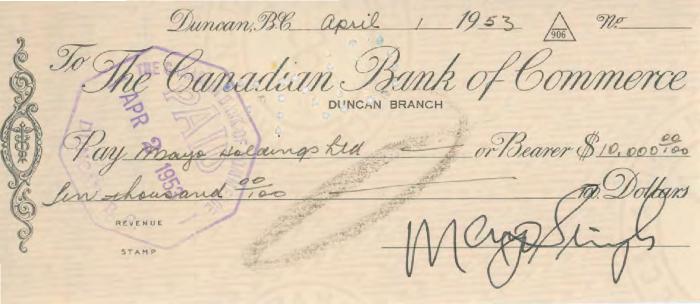 Duncan, B.C. April 1 1953 906 No.
To The Canadian Bank of Commerce
DUNCAN BRANCH
Pay Mayo Holdings Ltd or Bearer $10,000 00/100
Ten thousand 00/100 100 Dollars
REVENUE
STAMP
Mayo Singh
THE
PAID
APR 2 1953